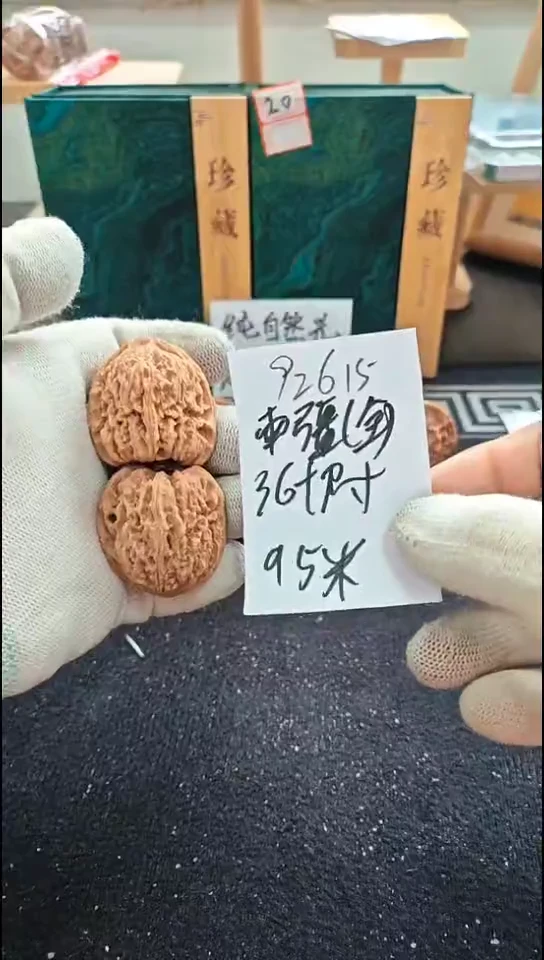 20
珍藏
珍藏
纯自然
92615
南疆(金)
36+尺寸
95米